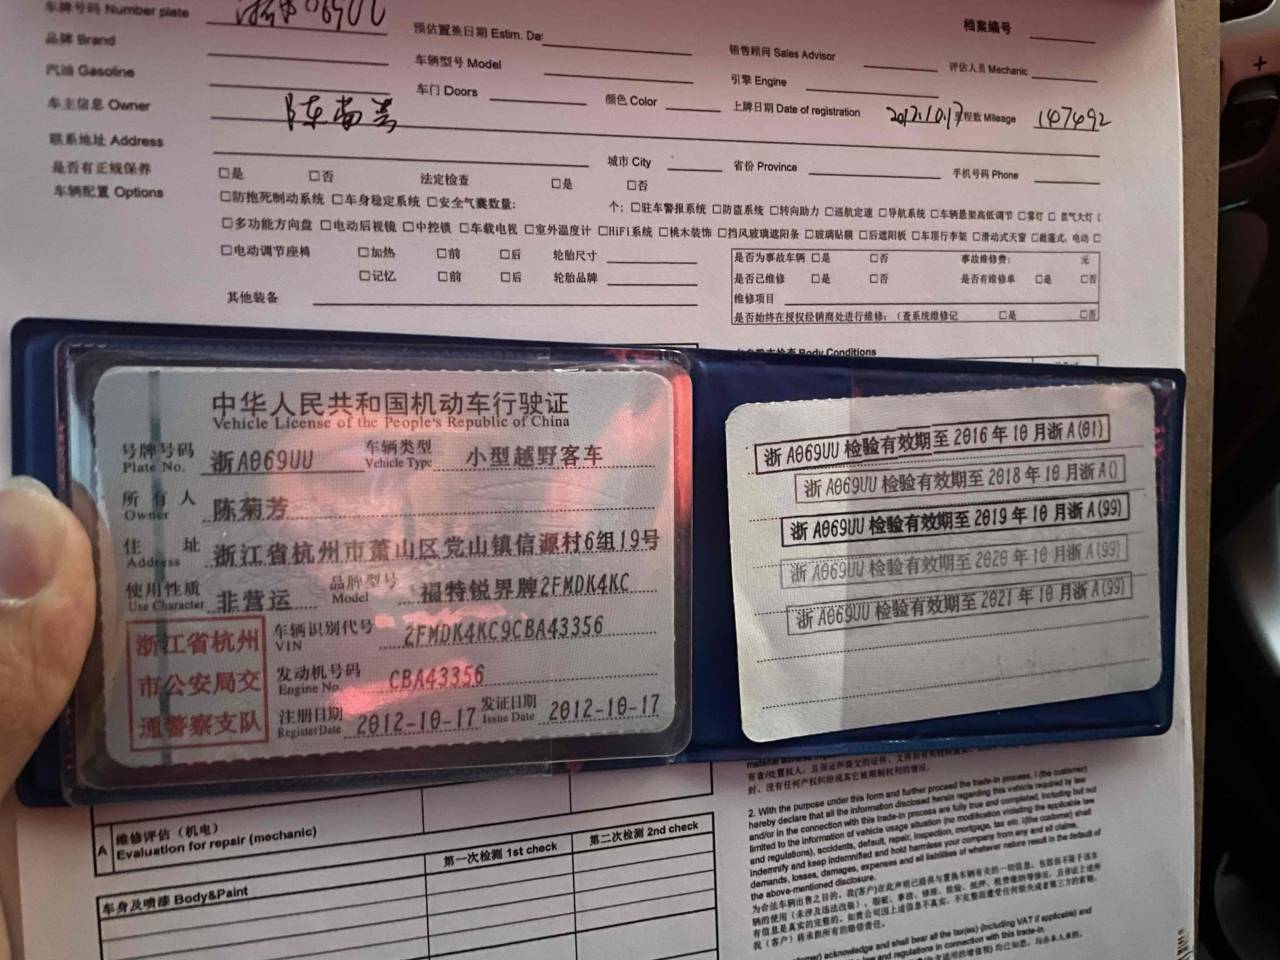 车牌号码 Number plate 浙A069UU 档案编号
品牌 Brand 预估置换日期 Estim. Da 销售顾问 Sales Advisor 评估人员 Mechanic
汽油 Gasoline 车辆型号 Model 引擎 Engine
车主信息 Owner 车门 Doors 颜色 Color 上牌日期 Date of registration 2012.10.17 程数 Mileage 147492
联系地址 Address 城市 City 省份 Province 手机号码 Phone
是否有正规保养 □是 □否 法定检查 □是 □否
车辆配置 Options □防抱死制动系统 □车身稳定系统 □安全气囊数量: 个; □驻车警报系统 □防盗系统 □转向助力 □巡航定速 □导航系统 □车辆悬架高低调节 □雾灯 □氙气大灯
□多功能方向盘 □电动后视镜 □中控锁 □车载电视 □室外温度计 □HiFi系统 □桃木装饰 □挡风玻璃遮阳条 □玻璃贴膜 □后遮阳板 □车顶行李架 □滑动式天窗 □敞篷式, 电动
□电动调节座椅 □加热 □前 □后 轮胎尺寸
□记忆 □前 □后 轮胎品牌
其他装备
是否为事故车辆 □是 □否 事故维修费: 元
是否已维修 □是 □否 是否有维修单 □是 □否
维修项目
是否始终在授权经销商处进行维修: (查系统维修记 □是 □否
Body Conditions
中华人民共和国机动车行驶证
Vehicle License of the People's Republic of China
号牌号码 浙A069UU 车辆类型 小型越野客车
Plate No. Vehicle Type
所有人 陈菊芳
Owner
住址 浙江省杭州市萧山区党山镇信源村6组19号
Address
使用性质 非营运 品牌型号 福特锐界牌2FMDK4KC
Use Character Model
浙江省杭州
市公安局交
通警察支队
车辆识别代号 2FMDK4KC9CBA43356
VIN
发动机号码 CBA43356
Engine No.
注册日期 2012-10-17 发证日期 2012-10-17
Register Date Issue Date
浙A069UU 检验有效期至2016年10月浙A(01)
浙A069UU 检验有效期至2018年10月浙A()
浙A069UU 检验有效期至2019年10月浙A(99)
浙A069UU 检验有效期至2020年10月浙A(99)
浙A069UU 检验有效期至2021年10月浙A(99)
A 维修评估(机电)
Evaluation for repair (mechanic)
第一次检测 1st check 第二次检测 2nd check
车身及喷漆 Body&Paint
2. With the purpose under this form and further proceed the trade-in process, I (the customer)
hereby declare that all the information disclosed herein regarding this vehicle required by law
and/or in the connection with this trade-in process are fully true and completed, including but not
limited to the information of vehicle usage situation (no modification violating the applicable law
and regulations), accidents, default, repair, inspection, mortgage, tax etc. I(the customer) shall
indemnify and keep indemnified and hold harmless your company from any and all claims,
demands, losses, damages, expenses and all liabilities of whatever nature result in the default of
the above-mentioned disclosure.
acknowledge and shall bear all the tax(es) (including VAT if applicable) and
law and regulations in connection with this trade-in.